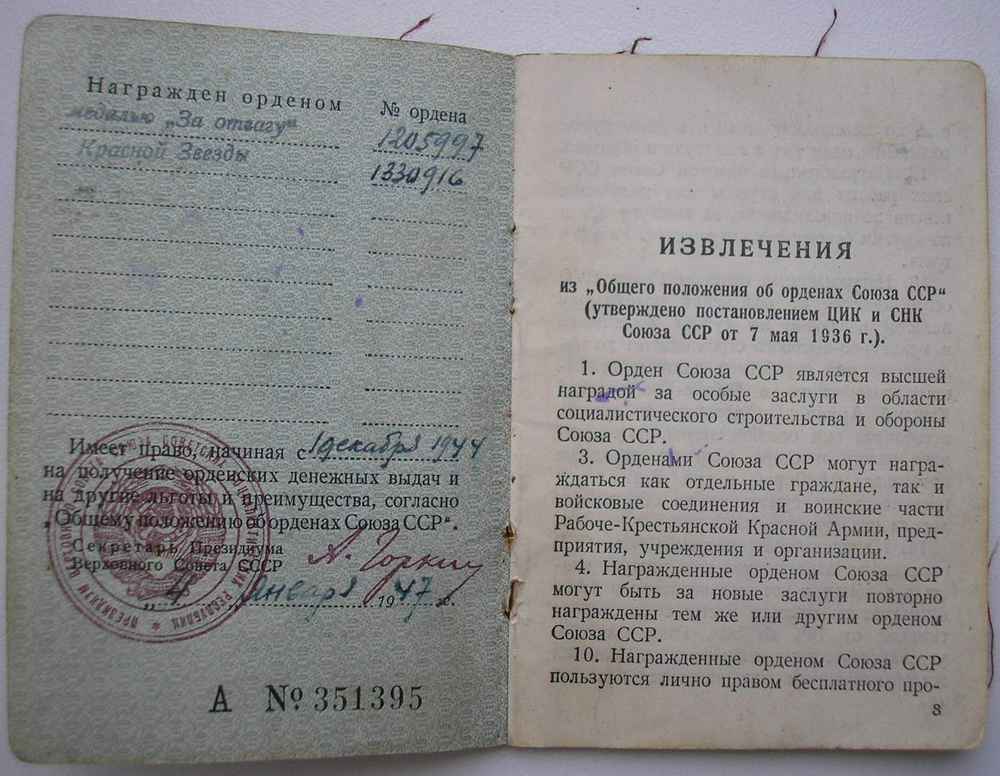 Награжден орденом № ордена
медалью „За отвагу“ 1205997
Красной Звезды 1330916
Имеет право, начиная с 1 декабря 1944
на получение орденских денежных выдач и
на другие льготы и преимущества, согласно
„Общему положению об орденах Союза ССР“.
Секретарь Президиума
Верховного Совета СССР А. Горкин
„4“ января 1947 г.
А № 351395
ИЗВЛЕЧЕНИЯ
из „Общего положения об орденах Союза ССР“
(утверждено постановлением ЦИК и СНК
Союза ССР от 7 мая 1936 г.).
1. Орден Союза ССР является высшей
наградой за особые заслуги в области
социалистического строительства и обороны
Союза ССР.
3. Орденами Союза ССР могут награ-
ждаться как отдельные граждане, так и
войсковые соединения и воинские части
Рабоче-Крестьянской Красной Армии, пред-
приятия, учреждения и организации.
4. Награжденные орденом Союза ССР
могут быть за новые заслуги повторно
награждены тем же или другим орденом
Союза ССР.
10. Награжденные орденом Союза ССР
пользуются лично правом бесплатного про-
3